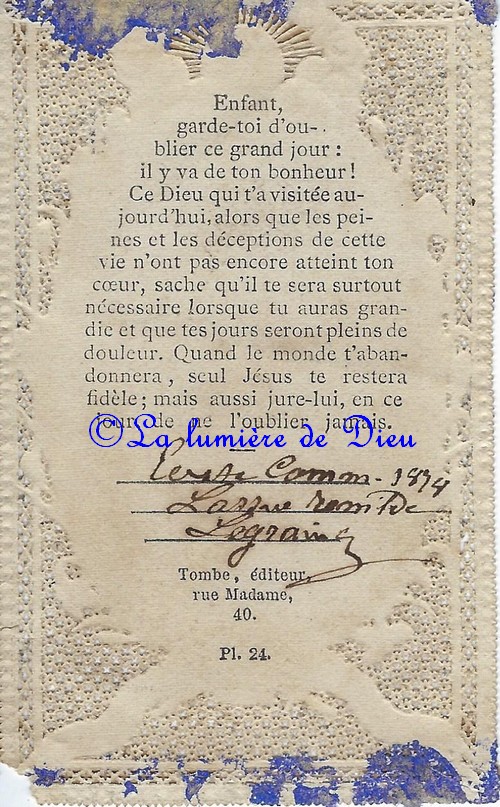 Enfant,
garde-toi d'ou-
blier ce grand jour :
il y va de ton bonheur !
Ce Dieu qui t'a visitée au-
jourd'hui, alors que les pei-
nes et les déceptions de cette
vie n'ont pas encore atteint ton
cœur, sache qu'il te sera surtout
nécessaire lorsque tu auras gran-
die et que tes jours seront pleins de
douleur. Quand le monde t'aban-
donnera, seul Jésus te restera
fidèle ; mais aussi jure-lui, en ce
jour de ne l'oublier jamais.
©La lumière de Dieu
Comm - 1874
Legrain
Tombe, éditeur,
rue Madame,
40.
Pl. 24.